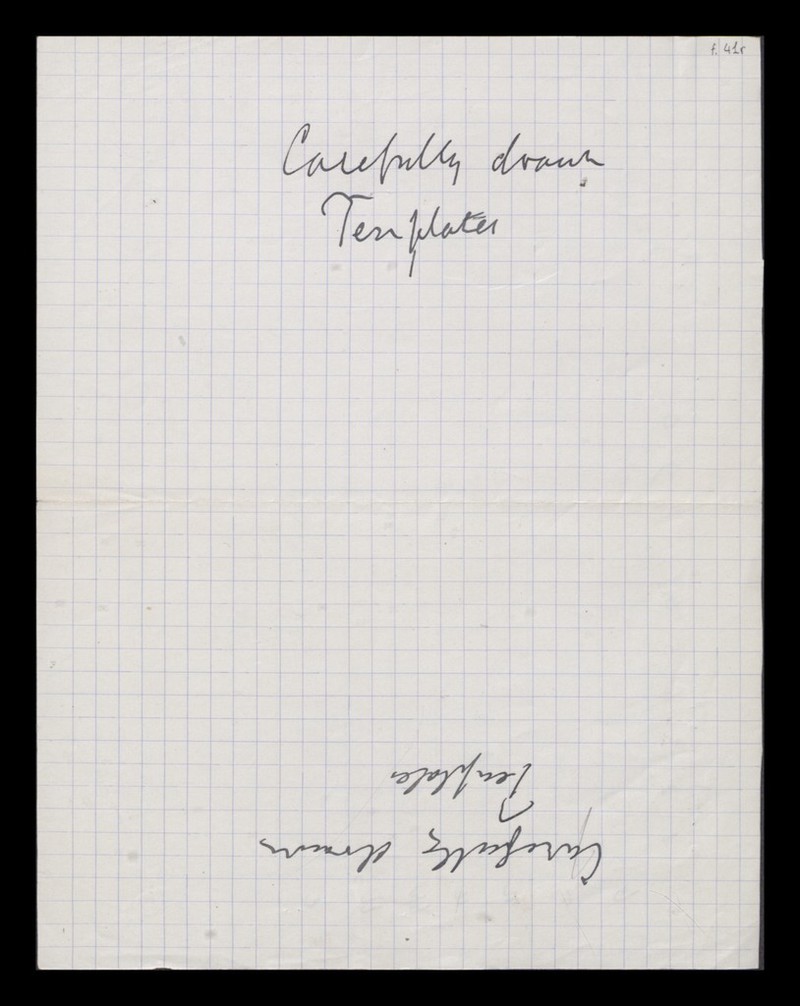 f. 41r
Carefully drawn
Templates
Carefully drawn
Templates